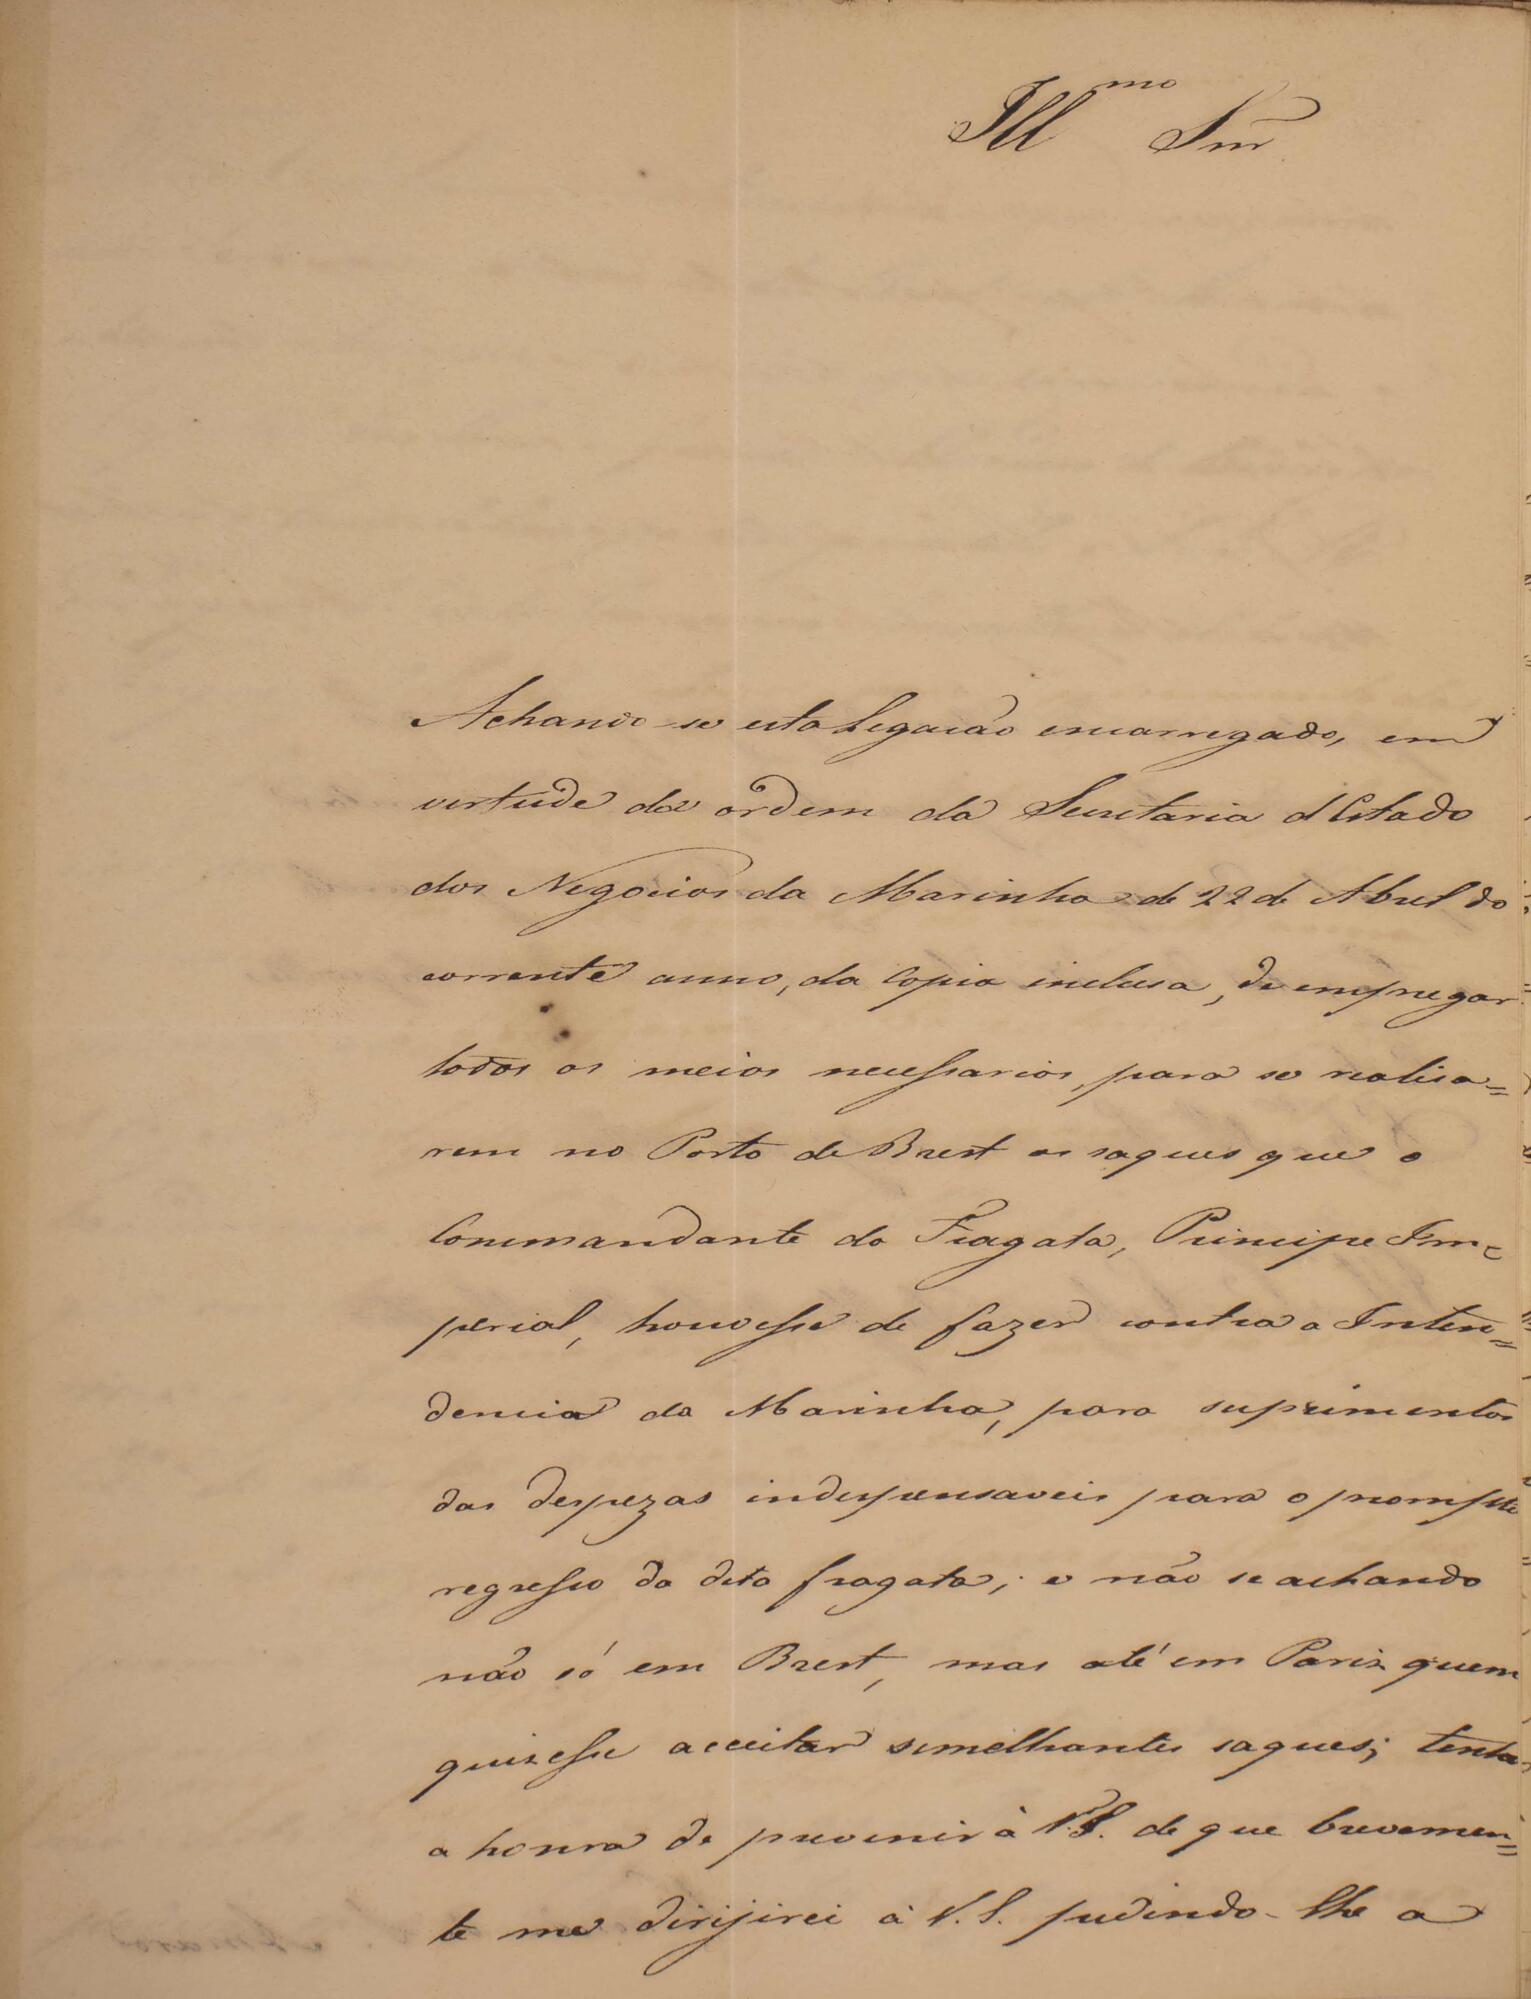 Ill^mo Snr
Achando-se esta Legacão encarregada, em
virtude da ordem da Secretaria d'Estado
dos Negocios da Marinha de 22 de Abril do
corrente anno, da Copia inclusa, de empregar
todos os meios necessarios, para se realisa=
rem no Porto de Brest os saques que o
Commandante da Fragata, Principe Im=
perial, houvesse de fazer contra a Inten=
dencia da Marinha, para suprimentos
das despezas indespensaveis para o prompto
regresso da dita fragata; e não se achando
não só em Brest, mas até em Pariz quem
quizesse acceitar semelhantes saques; tenho
a honra de prevenir à V.S. de que brevemen=
te me dirijirei à V.S. pedindo-lhe a